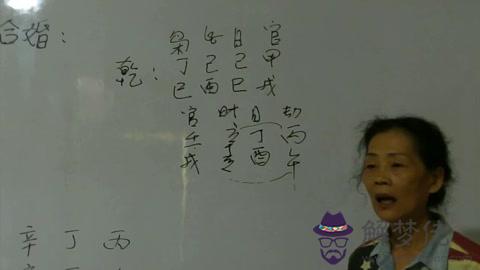 合婚：
枭 日 官
乾： 丁 己 己 甲
巳 酉 巳 戌
官 时 日 劫
壬 丁 丙
戌 酉 午
辛 丁 丙
解梦佬